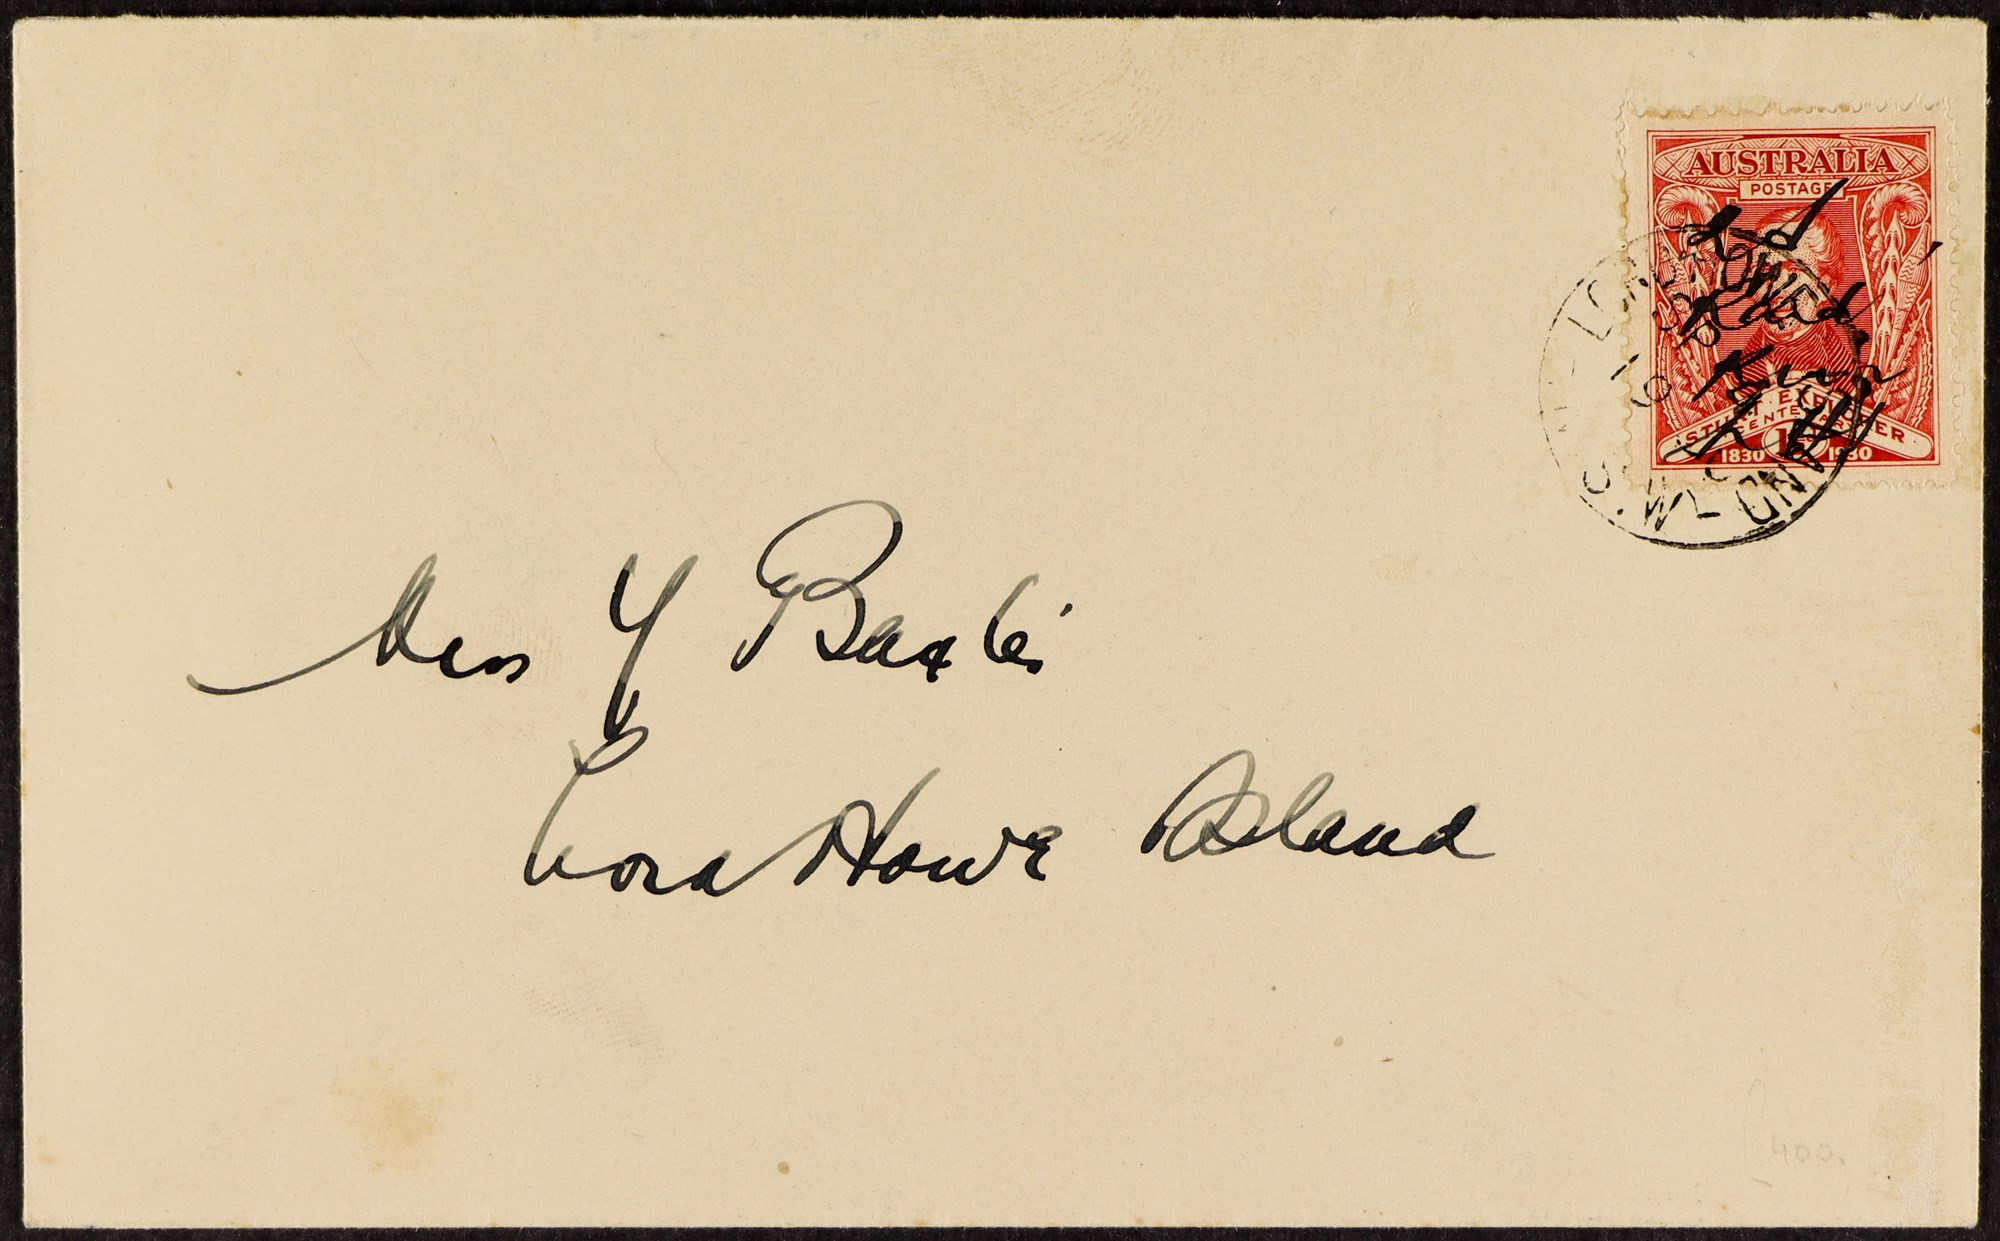 AUSTRALIA
POSTAGE
2d
Paid
STURT EXPLORER
CENTENARY
1830 1930
LORD HOWE ISLAND
N.S.W.
Mrs Y Baxter
Lord Howe Island
400.